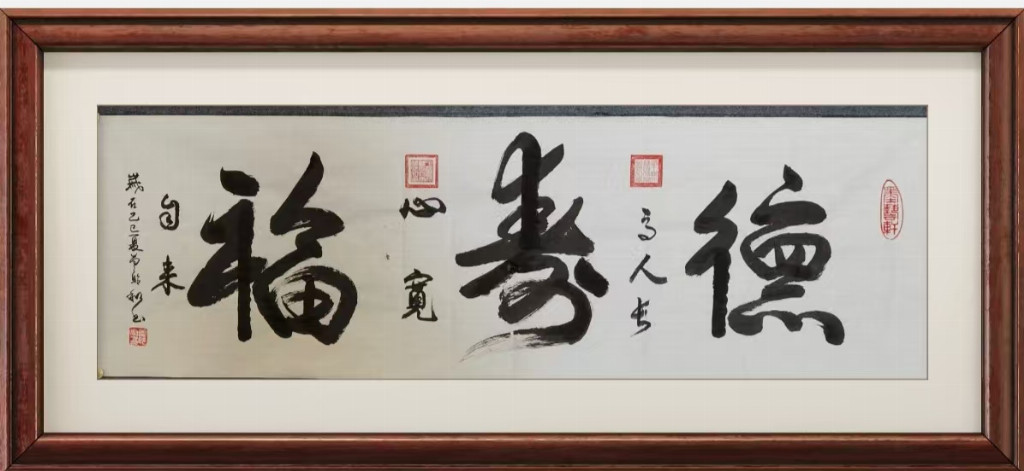 德
高人长
寿
心宽
福
自来
歲在乙巳夏